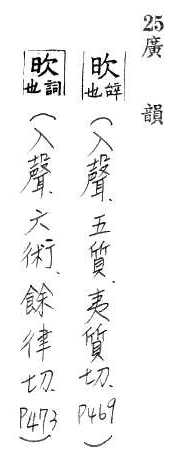 25廣韻
欥辝也(入聲、五質、夷質切、P469)
欥詞也(入聲、六術、餘律切、P473)